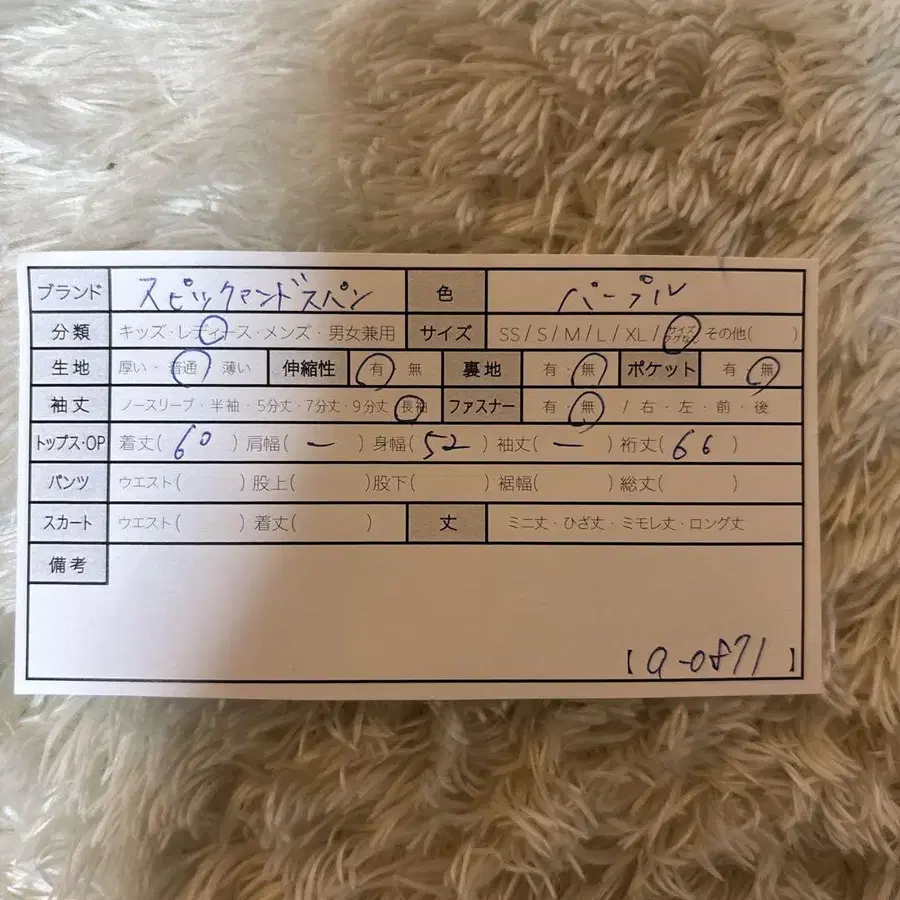 ブランド スピックアンドスパン 色 パープル
分類 キッズ・レディース・メンズ・男女兼用 サイズ SS/S/M/L/XL/サイズタグなし その他( )
生地 厚い・普通・薄い 伸縮性 有・無 裏地 有・無 ポケット 有・無
袖丈 ノースリーブ・半袖・5分丈・7分丈・9分丈・長袖 ファスナー 有・無 / 右・左・前・後
トップス・OP 着丈(60) 肩幅(ー) 身幅(52) 袖丈(ー) 裄丈(66)
パンツ ウエスト( ) 股上( ) 股下( ) 裾幅( ) 総丈( )
スカート ウエスト( ) 着丈( ) 丈 ミニ丈・ひざ丈・ミモレ丈・ロング丈
備考
【a-0871】